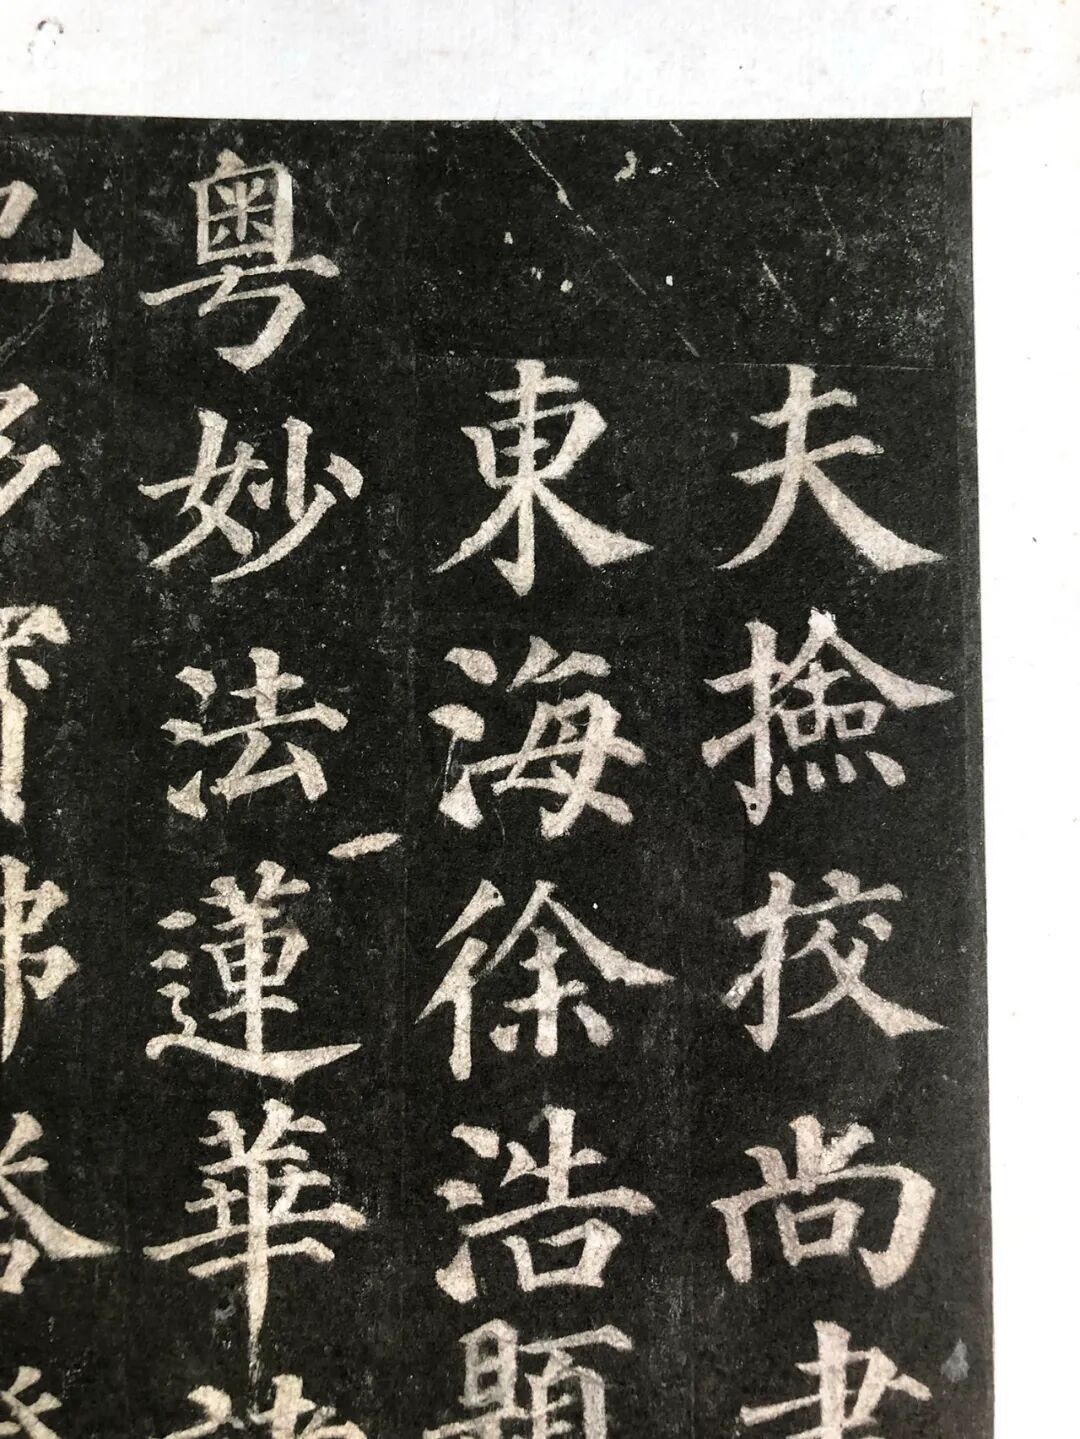 夫撿挍尚書
東海徐浩題
粤妙法蓮華